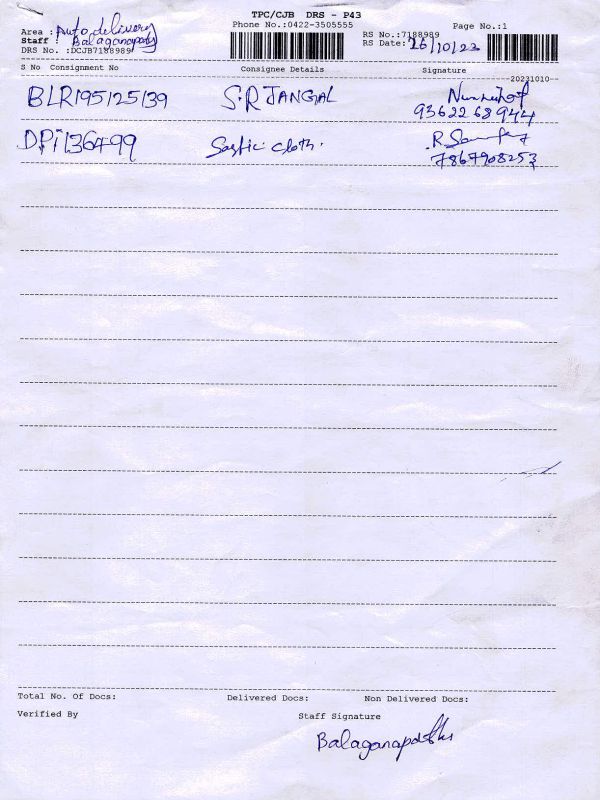 TPC/CJB DRS - P43
Area : Auto delivery Phone No.:0422-3505555 Page No.:1
Staff : Balaganapathy RS No.:7188989
DRS No. :DCJB7188989 RS Date: 26/10/23
S No Consignment No Consignee Details Signature
20231010
BLR195125139 S.R JANGAL
9362268944
DPI136499 cloth. R
7867908253
Total No. Of Docs: Delivered Docs: Non Delivered Docs:
Verified By Staff Signature
Balaganapathy